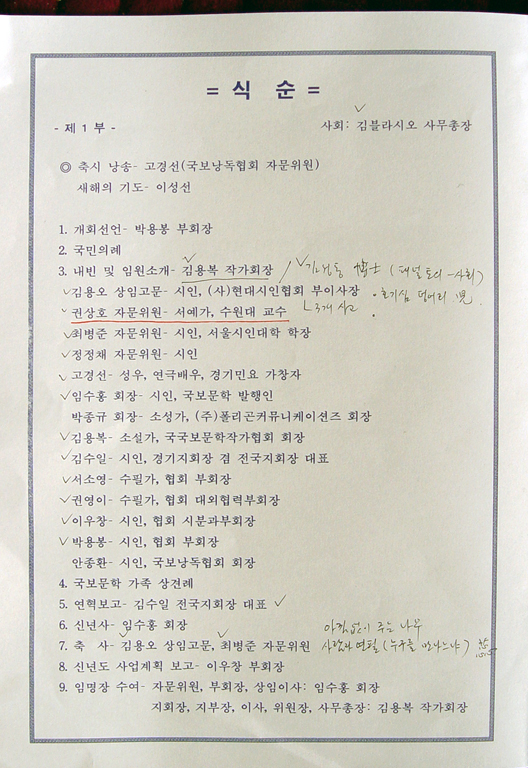 = 식 순 =
- 제 1 부 -
사회: 김블라시오 사무총장
◎ 축시 낭송- 고경선(국보낭독협회 자문위원)
새해의 기도- 이성선
1. 개회선언- 박용봉 부회장
2. 국민의례
3. 내빈 및 임원소개- 김용복 작가회장 / 博士 (패널토의-사회)
김용오 상임고문- 시인, (사)현대시인협회 부이사장 · 호기심 덩어리 兒
권상호 자문위원- 서예가, 수원대 교수
최병준 자문위원- 시인, 서울시인대학 학장
정정채 자문위원- 시인
고경선- 성우, 연극배우, 경기민요 가창자
임수홍 회장- 시인, 국보문학 발행인
박종규 회장- 소성가, (주)폴리곤커뮤니케이션즈 회장
김용복- 소설가, 국국보문학작가협회 회장
김수일- 시인, 경기지회장 겸 전국지회장 대표
서소영- 수필가, 협회 부회장
권영이- 수필가, 협회 대외협력부회장
이우창- 시인, 협회 시분과부회장
박용봉- 시인, 협회 부회장
안종환- 시인, 국보낭독협회 회장
4. 국보문학 가족 상견례
5. 연혁보고- 김수일 전국지회장 대표
6. 신년사- 임수홍 회장 아낌없이 주는 나무
7. 축 사- 김용오 상임고문, 최병준 자문위원 사람과 연필 (누구를 만나느냐)
8. 신년도 사업계획 보고- 이우창 부회장
9. 임명장 수여- 자문위원, 부회장, 상임이사: 임수홍 회장
지회장, 지부장, 이사, 위원장, 사무총장: 김용복 작가회장